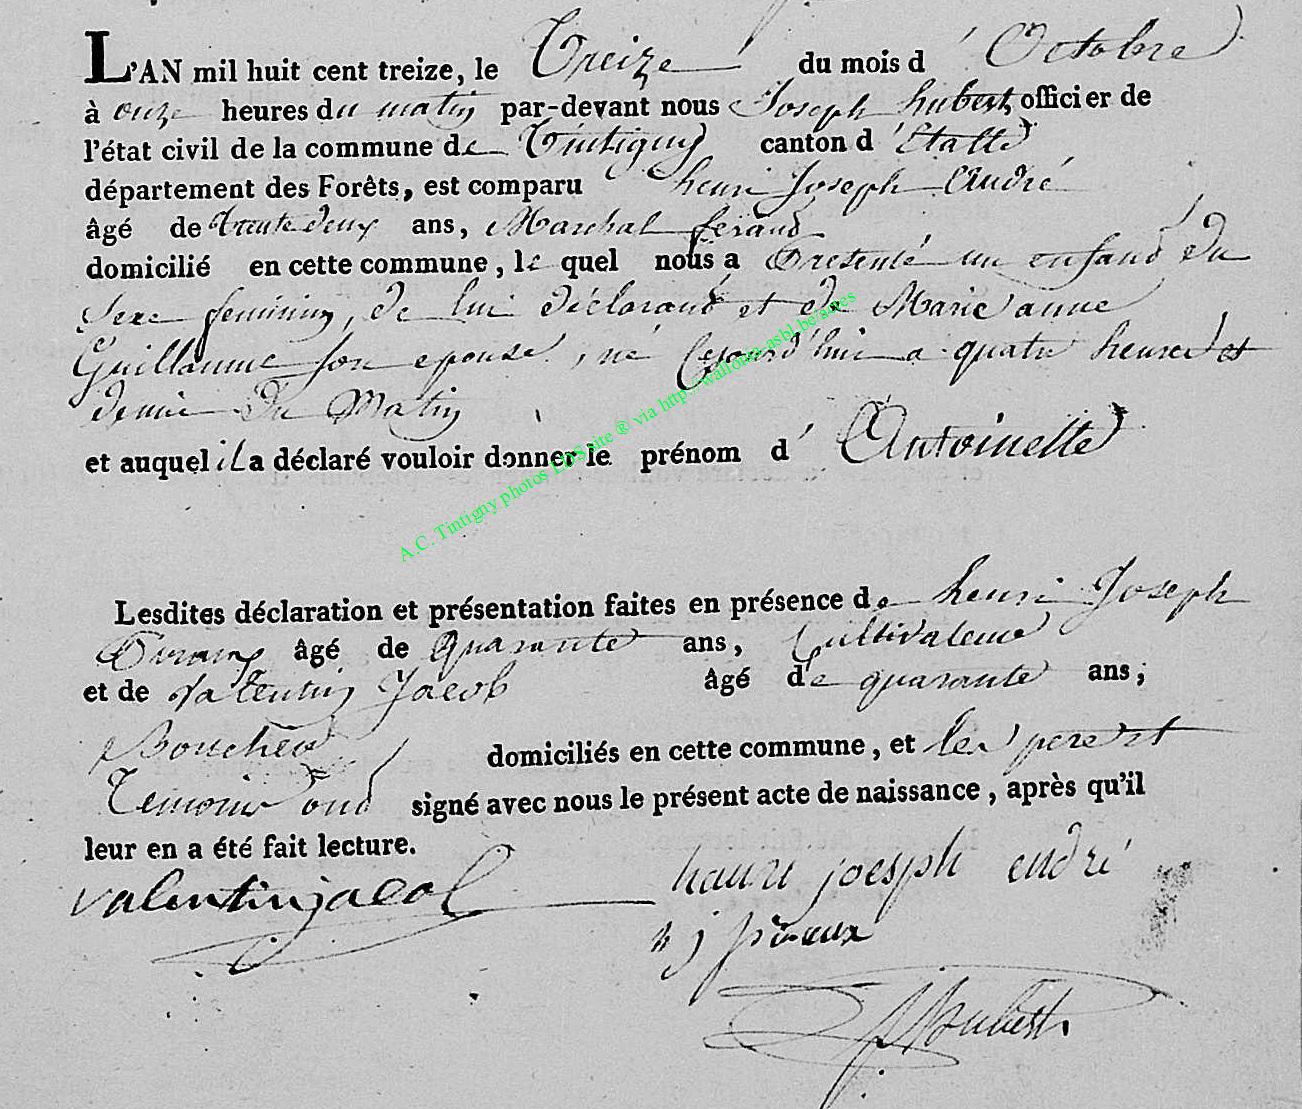 L'AN mil huit cent treize, le Treize du mois d'Octobre
à onze heures du matin par-devant nous Joseph hubert officier de
l'état civil de la commune de Tintigny canton d'Etalle
département des Forêts, est comparu henri Joseph André
âgé de trente deux ans, Marchal feraud
domicilié en cette commune, le quel nous a Presenté un enfand du
Sexe feminin, de lui déclarand et de Marie anne
Guillaume son epouse, né Cejourd'hui a quatre heures et
demie du Matin
et auquel il a déclaré vouloir donner le prénom d'Antoinette
A.C. Tintigny photos LDS site ® via http://wallonia-asbl.be/actes
Lesdites déclaration et présentation faites en présence de henri Joseph
âgé de Quarante ans, Cultivateur
et de Valentin Jacob âgé de quarante ans;
Boucher domiciliés en cette commune, et les pere et
Temoins ond signé avec nous le présent acte de naissance, après qu'il
leur en a été fait lecture.
valentin jacob
joesph endré
h j
Hubert